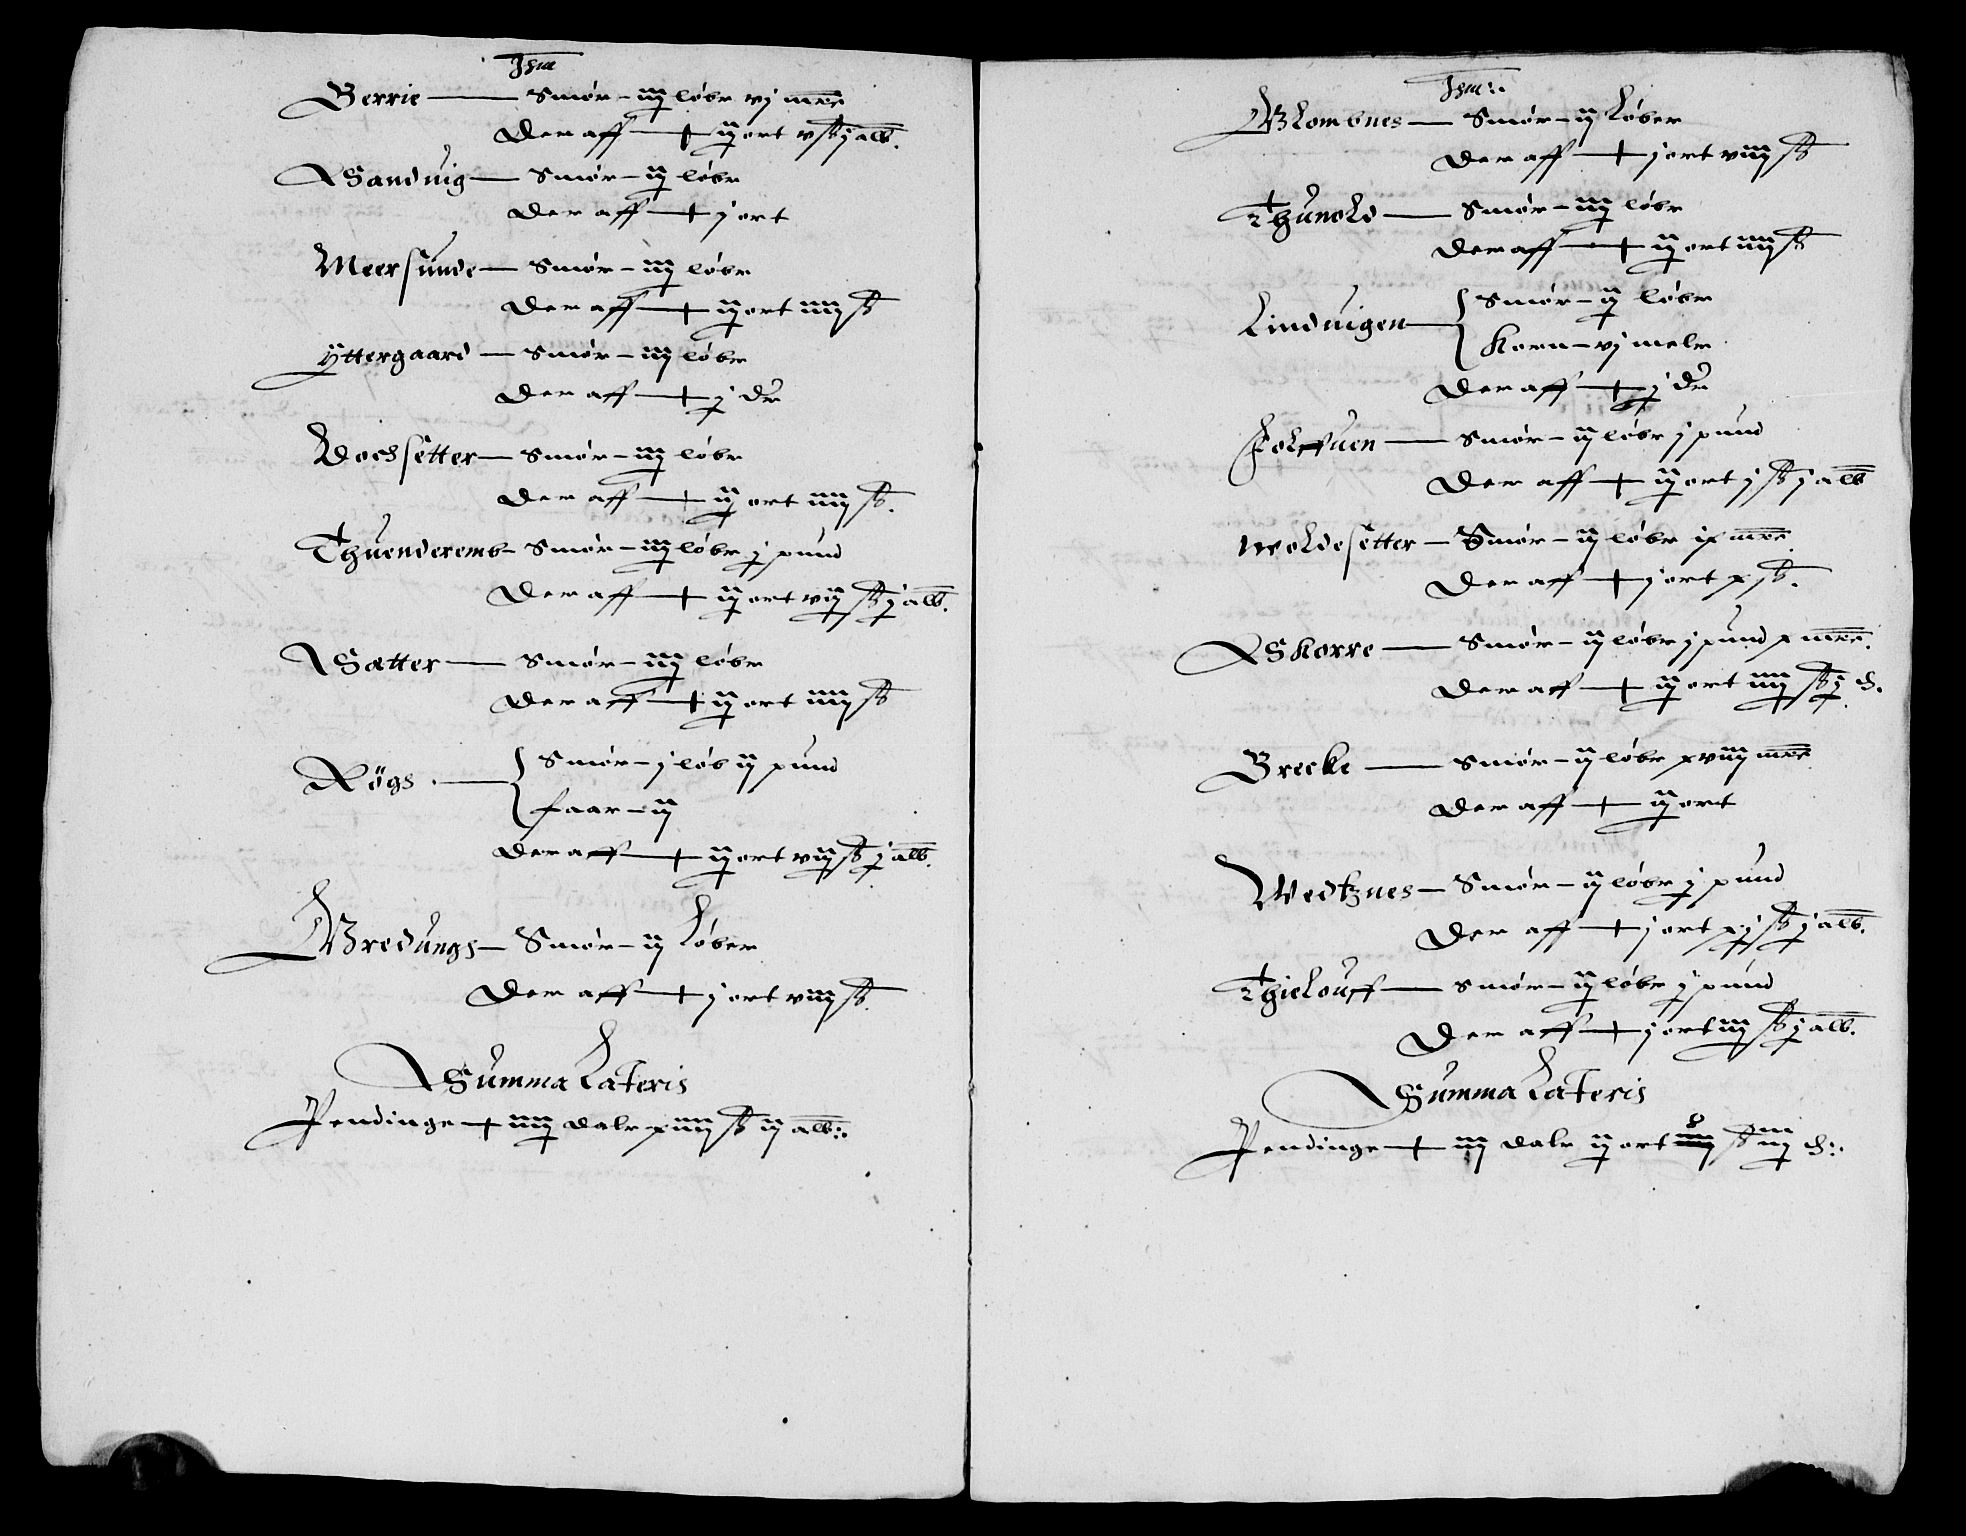 Jtm
Berrie — Smør – iij løbr vj mrr
Der aff — + ij ort v ß j alb.
Sanduig — Smør – ij løbr
Der aff — + j ort
Meersunde — Smør – iij løbr
Der aff — + ij ort iiij ß
Yttergaard — Smør – iij løbr
Der aff — + j dr
Dochsetter — Smør – iij løbr
Der aff — + ij ort iiij ß.
Thuenderemb – Smør – iij løbr j pund
Der aff — + ij ort vij ß j alb.
Sætter — Smør – iij løbr
Der aff — + ij ort iiij ß
Røgs — Smør – j løb ij pund
faar – ij
Der aff — + ij ort vij ß j alb.
Bredungs – Smør – ij Løber
Der aff — + j ort viij ß.
Summa Lateris
Pendinge + iiij dalr xiiij ß ij alb:
Jtm:
Blombnes — Smør – ij Løber
Der aff — + j ort viij ß
Thunold — Smør – iij løbr
Der aff — + ij ort iiij ß
Linduigen — Smør – ij løbr
Korn – vj melr
Der aff — + j dr
Folffuen — Smør – ij løbr j pund
Der aff — + ij ort j ß j alb
woldesetter – Smør – ij løbr ix mrr.
Der aff — + j ort x ß.
Skorre — Smør – ij løbr j pund x mrr.
Der aff — + ij ort iiij ß j d.
Brecke — Smør – ij løbr xviij mrr
Der aff — + ij ort
Wedtznes – Smør – ij løbr j pund
Der aff — + j ort xj ß j alb.
Thielouff — Smør – ij løbr j pund
Der aff — + j ort iij ß j alb.
Summa Lateris
Pendinge + iiij dalr ij ort ß iij d: